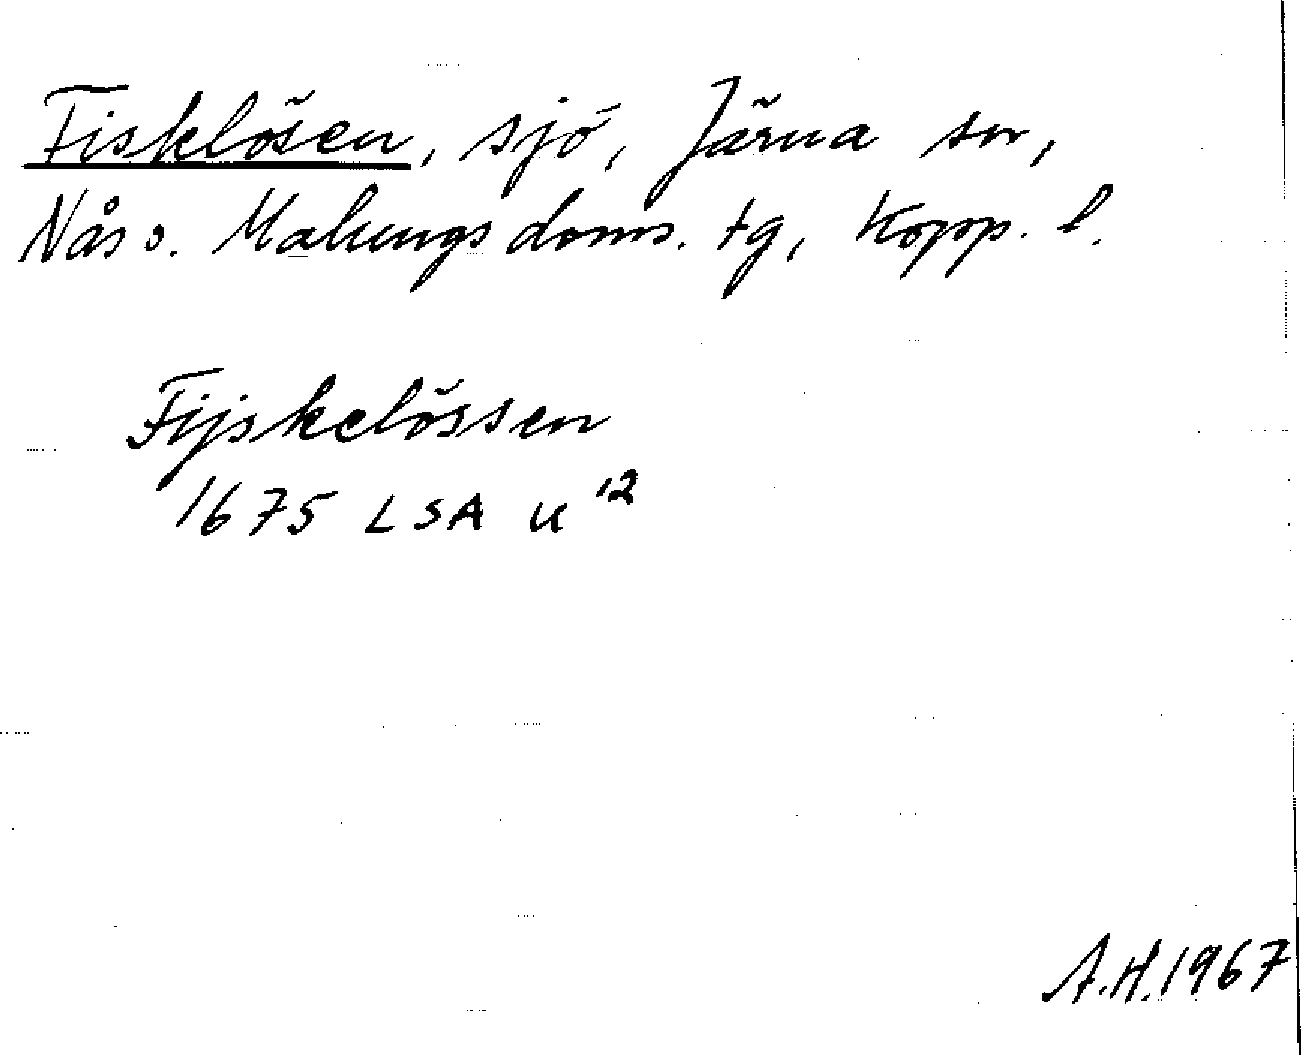 Fisklösen, sjö, Järna sn,
Nås o. Malungs doms. tg, Kopp. l.
Fijskelössen
1675 LSA U 12
A.H. 1967